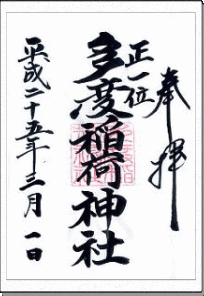 奉拝
正一位
多度稲荷神社
平成二十五年三月一日